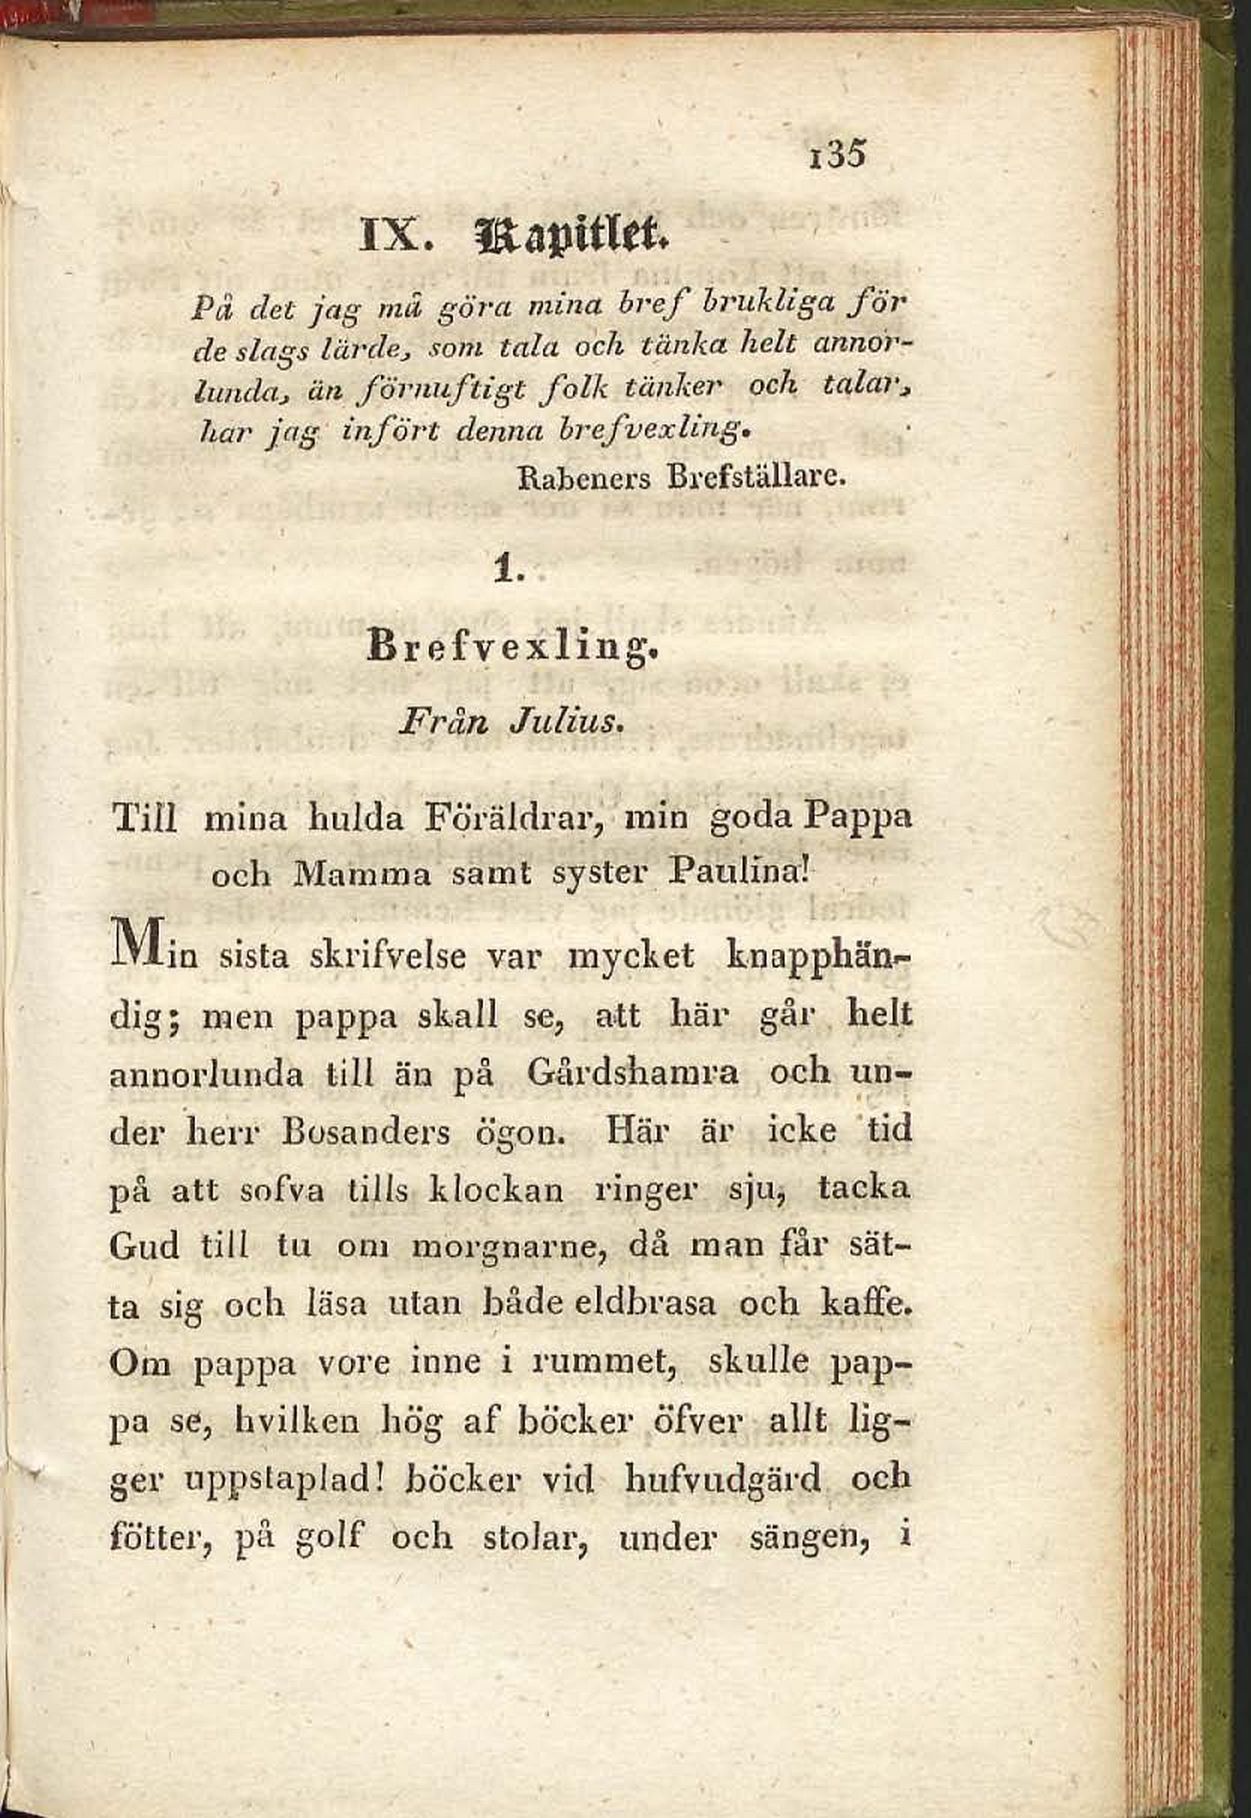 135
IX. Kapitlet.
På det jag må göra mina bref brukliga för
de slags lärde, som tala och tänka helt annor-
lunda, än förnuftigt folk tänker och talar,
har jag infört denna brefvexling.
Rabeners Brefställare.
1.
Brefvexling.
Från Julius.
Till mina hulda Föräldrar, min goda Pappa
och Mamma samt syster Paulina!
Min sista skrifvelse var mycket knapphän-
dig; men pappa skall se, att här går helt
annorlunda till än på Gårdshamra och un-
der herr Bosanders ögon. Här är icke tid
på att sofva tills klockan ringer sju, tacka
Gud till tu om morgnarne, då man får sät-
ta sig och läsa utan både eldbrasa och kaffe.
Om pappa vore inne i rummet, skulle pap-
pa se, hvilken hög af böcker öfver allt lig-
ger uppstaplad! böcker vid hufvudgärd och
fötter, på golf och stolar, under sängen, i